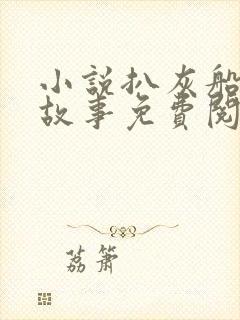 小說扒灰船
故事免費閱
荔簫